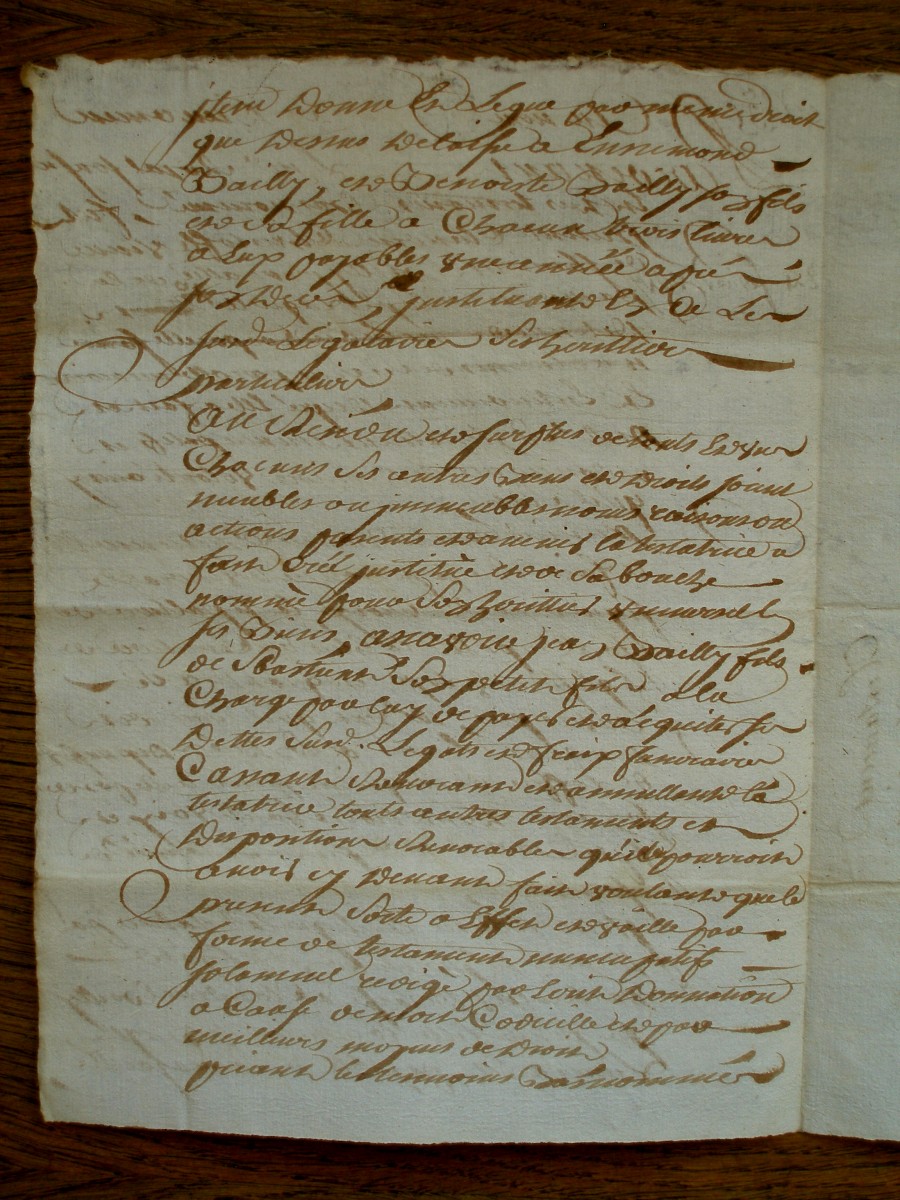 Item donne et legue par meme droit
que dessus de laisse a Ennemond
Bailly, et a Benoiste Bailly son fils
et sa fille a chacun trois livres
a eux payables une année apres
son deces, instituant les de les
surd. legataires ses heritiers
particuliers
Au residu et surplus de touts et un
chacuns ses autres biens et droits soient
meubles ou immeubles noms raisons ou
actions presents et advenir la testatrice a
fait créé institué et de sa bouche
nommé pour son heritier universel
ses biens, a scavoir Jean Bailly fils
de Sebastien son petit fils a la
charge par luy de payer et acquiter ses
dettes surd. legats et fraix funeraires
Cassant revocant et annullant la
testatrice touts autres testaments et
dispositions revocables qu'elle pourroit
avoir cy devant fait voulant que le
present sorte a effet et vaille par
forme de testament nuncupatif
solemnel redigé par escrit donnation
a cause de mort codicille et par
meilleurs moyens de droit
priant les temoins bas nommés